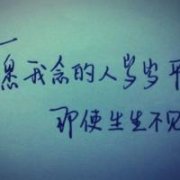 愿我念的人岁岁平
即使生生不见